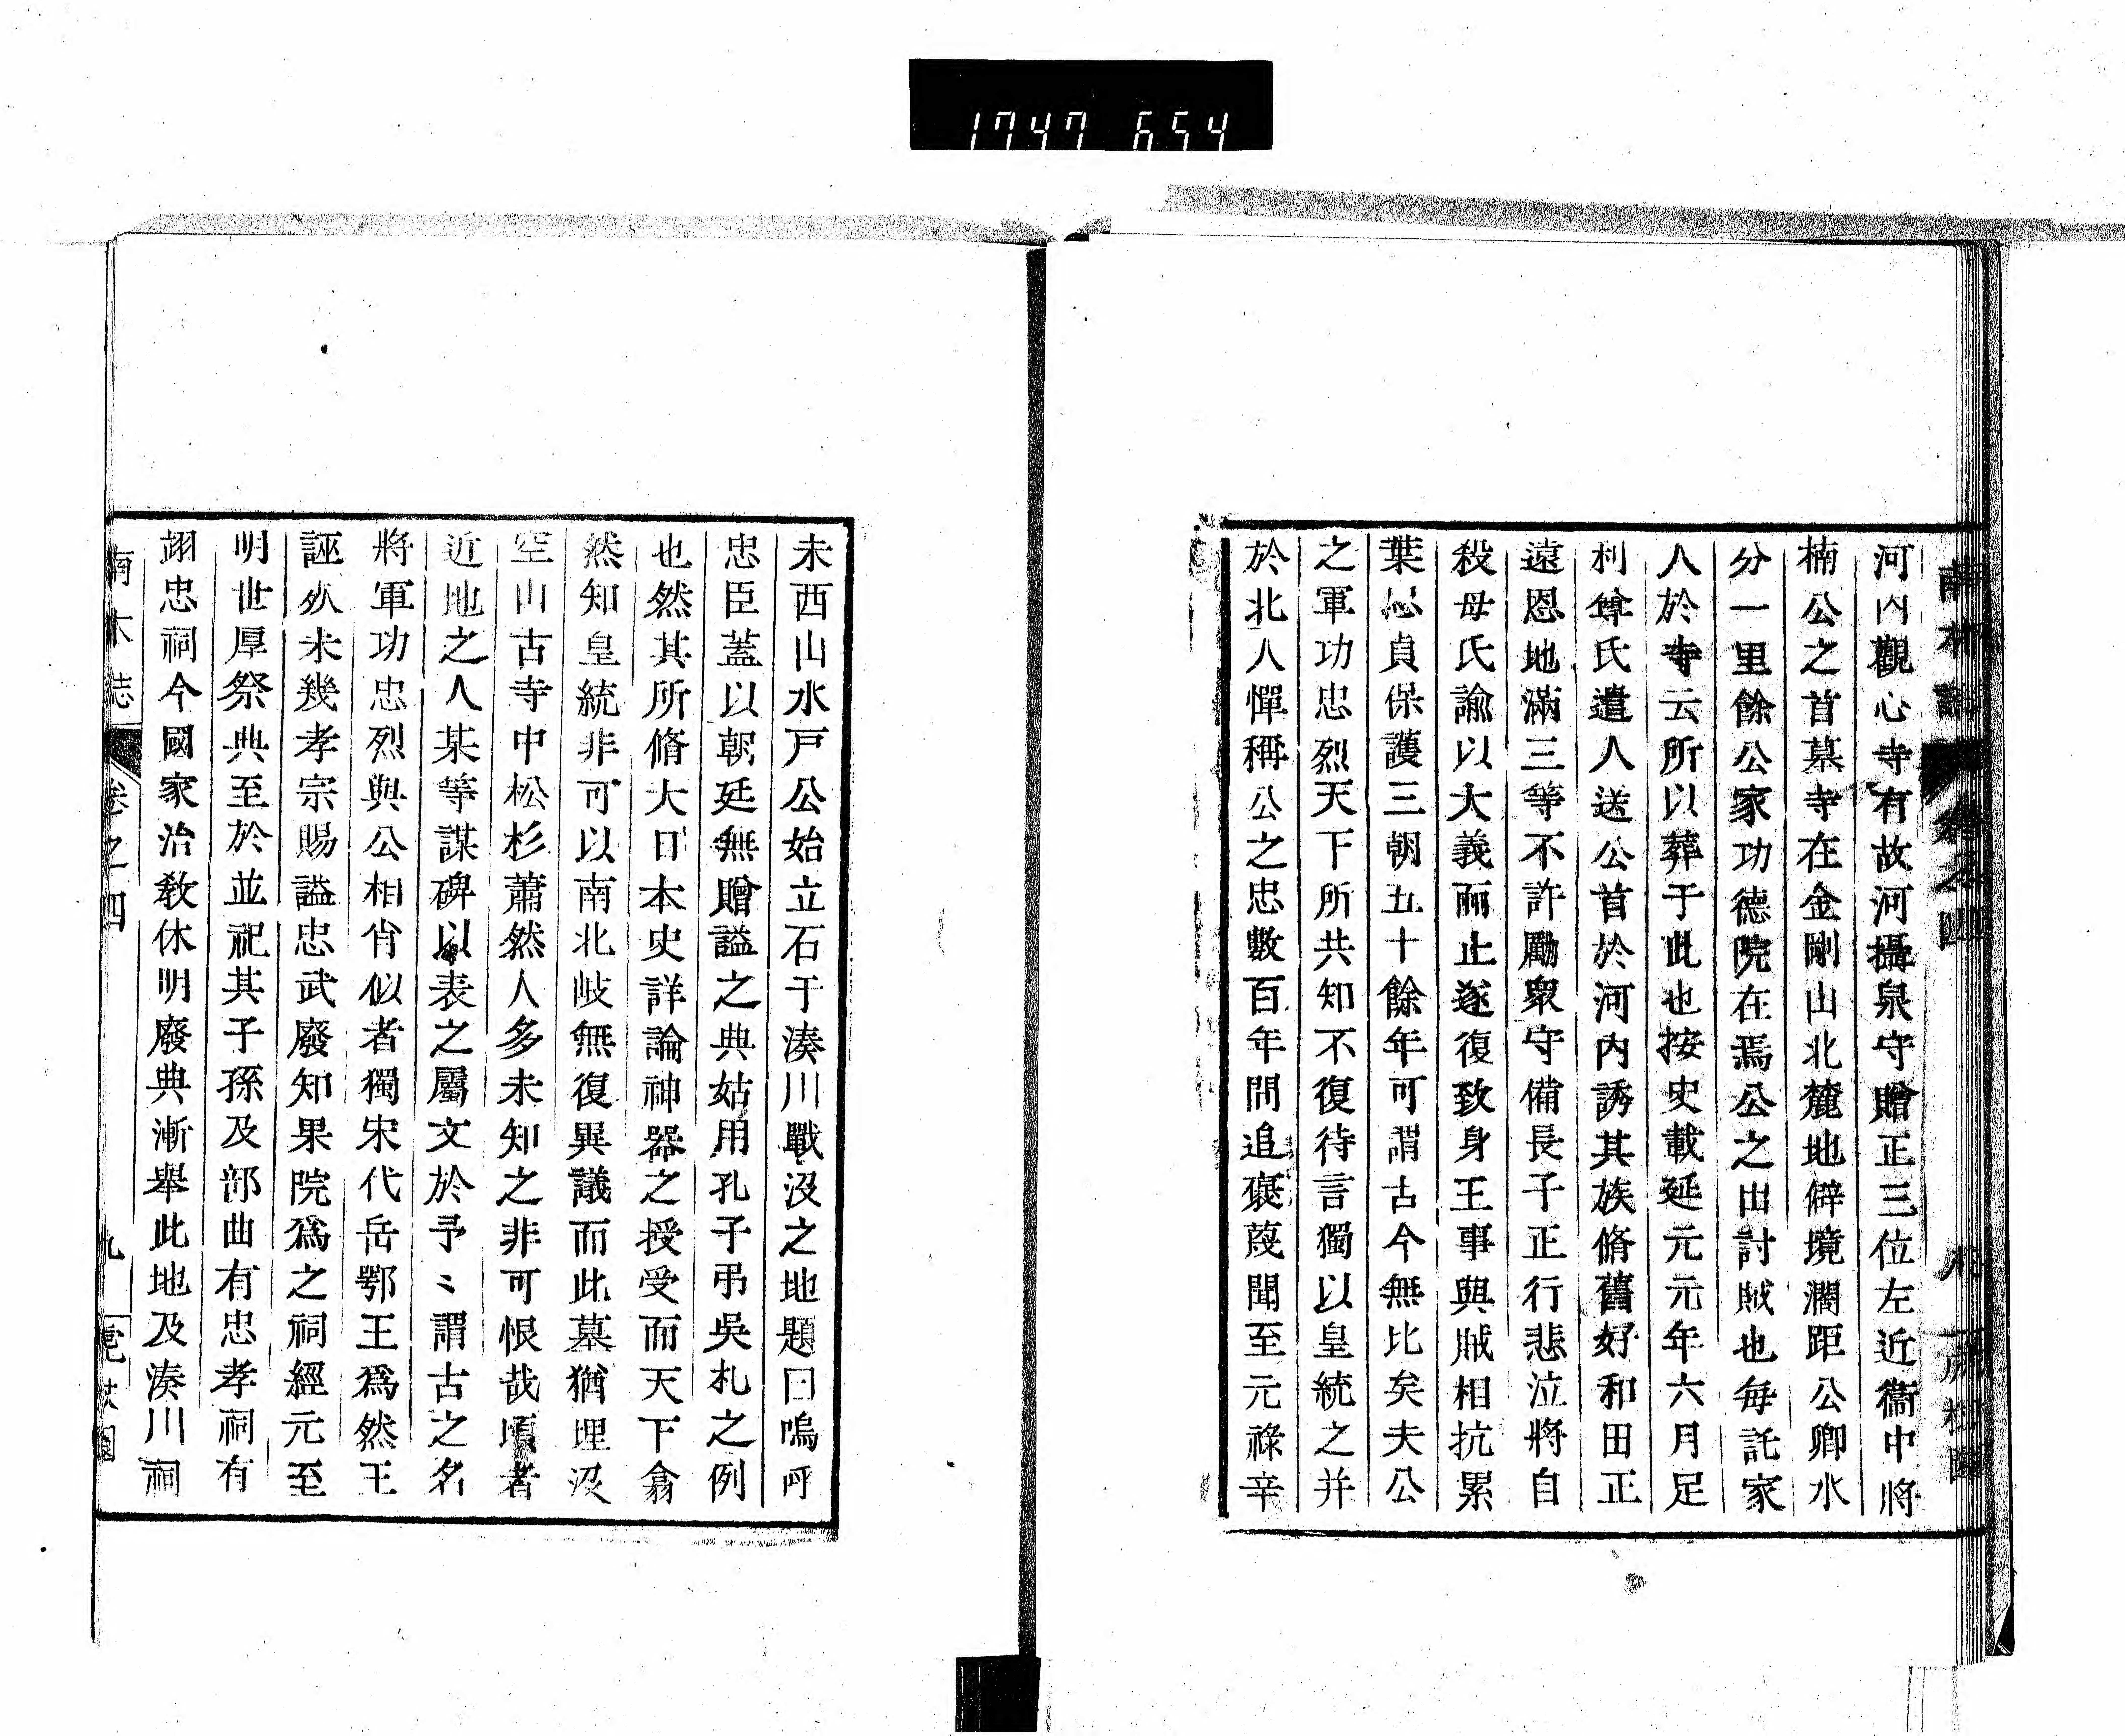 1747 654
河内觀心寺有故河攝泉守贈正三位左近衞中將
楠公之首墓寺在金剛山北麓地僻境濶距公卿水
分一里餘公家功德院在焉公之出討賊也每託家
人於寺云所以葬于此也按史載延元元年六月足
利尊氏遣人送公首於河内誘其族脩舊好和田正
遠恩地滿三等不許勵衆守備長子正行悲泣將自
殺母氏諭以大義而止遂復致身王事與賊相抗累
葉忠貞保護三朝五十餘年可謂古今無比矣夫公
之軍功忠烈天下所共知不復待言獨以皇統之并
於北人憚稱公之忠數百年間追襃蔑聞至元祿辛
未西山水戸公始立石于湊川戰沒之地題曰嗚呼
忠臣蓋以朝廷無贈謚之典姑用孔子弔吳札之例
也然其所脩大日本史詳論神器之授受而天下翕
然知皇統非可以南北岐無復異議而此墓猶埋沒
空山古寺中松杉蕭然人多未知之非可恨哉頃者
近地之人某等謀碑以表之屬文於予〻謂古之名
將軍功忠烈與公相肖似者獨宋代岳鄂王爲然王
誣死未幾孝宗賜謚忠武廢知果院爲之祠經元至
明世厚祭典至於並祀其子孫及部曲有忠孝祠有
翊忠祠今國家治教休明廢典漸舉此地及湊川祠
南木誌 卷之四 九